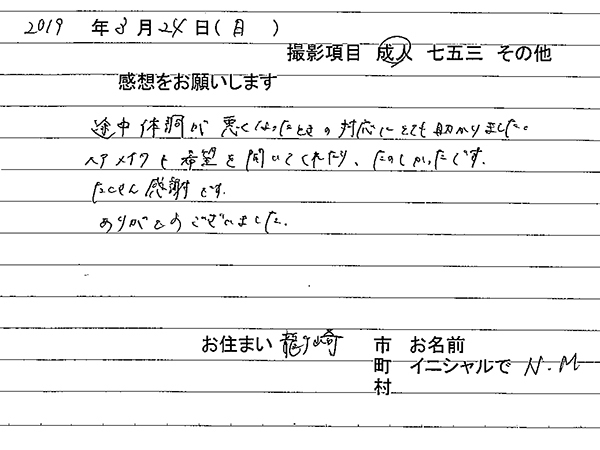 2019 年 3 月 24 日 ( 日 )
撮影項目 成人 七五三 その他
感想をお願いします
途中体調が悪くなったときの対応にとても助かりました。
ヘアメイクも希望を聞いてくれたり、たのしかったです。
たくさん感謝です。
ありがとうございました。
お住まい 龍ヶ崎 市 お名前
町 イニシャルで N.M
村